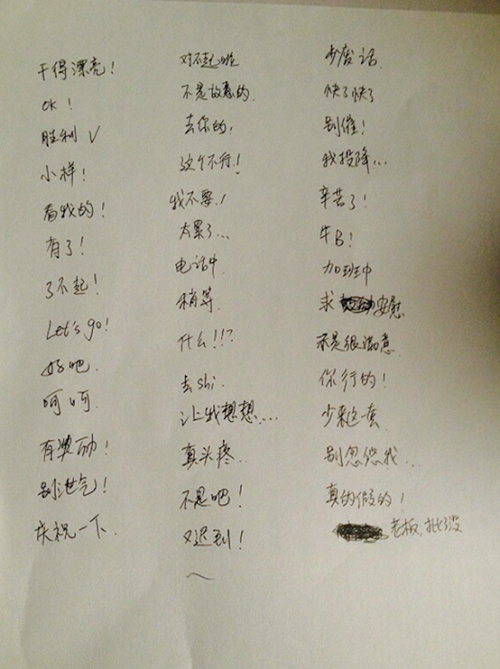 干得漂亮！
OK！
胜利 √
小样！
看我的！
有了！
了不起！
Let's go!
好吧
呵呵
有奖励！
别泄气！
庆祝一下.
对不起啦
不是故意的.
去你的！
这个不行！
我不要！
太累了...
电话中
稍等.
什么!!!?
去shi.
让我想想....
真头疼..
不是吧！
又迟到！
少废话
快了快了
别催！
我投降...
辛苦了！
牛B！
加班中
求 安慰.
不是很满意.
你行的！
少来这套
别忽悠我...
真的假的！
老板,批了没